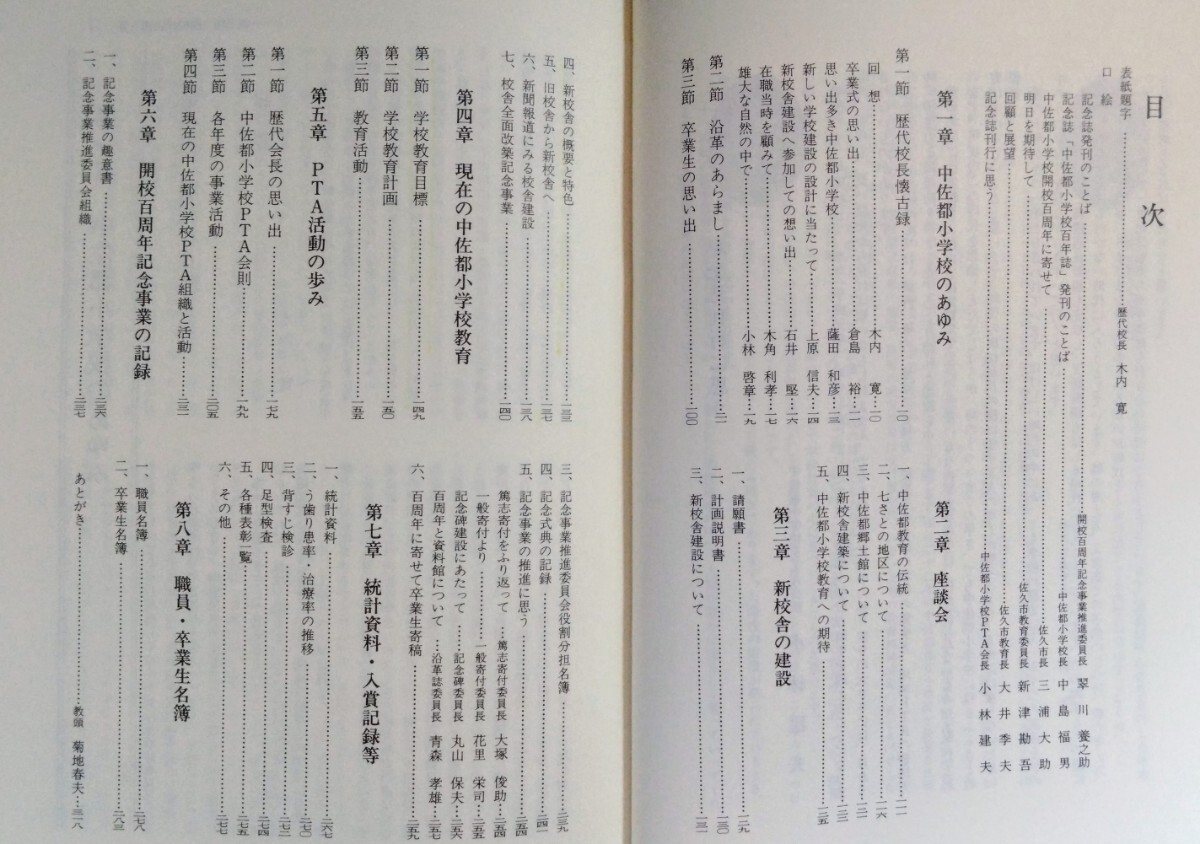 目次
表紙題字……歴代校長 木内 寛
口絵
記念誌発刊のことば……開校百周年記念事業推進委員長 翠川 養之助
記念誌「中佐都小学校百年誌」発刊のことば……中佐都小学校長 中島 福男
中佐都小学校開校百周年に寄せて……佐久市長 三浦 大助
明日を期待して……佐久市教育委員長 新津 勘吾
回顧と展望……佐久市教育長 大井 季夫
記念誌刊行に思う……中佐都小学校PTA会長 小林 建夫
第一章 中佐都小学校のあゆみ
第一節 歴代校長懐古録……一〇
回想……木内 寛…一〇
卒業式の思い出……倉島 裕…一一
思い出多き中佐都小学校……薩田 和彦…一三
新しい学校建設の設計に当たって……上原 信夫…一四
新校舎建設へ参加しての想い出……石井 堅…一六
在職当時を顧みて……木角 利孝…一七
雄大な自然の中で……小林 啓章…一九
第二節 沿革のあらまし……二一
第三節 卒業生の思い出……一〇〇
第二章 座談会
一、中佐都教育の伝統……一一一
二、七さとの地区について……一一六
三、中佐都郷土館について……一二一
四、新校舎建築について……一二三
五、中佐都小学校教育への期待……一二五
第三章 新校舎の建設
一、請願書……一二九
二、計画説明書……一三〇
三、新校舎建設について……一三一
四、新校舎の概要と特色……一三三
五、旧校舎から新校舎へ……一三七
六、新聞報道にみる校舎建設……一三八
七、校舎全面改築記念事業……一四〇
第四章 現在の中佐都小学校教育
第一節 学校教育目標……一四九
第二節 学校教育計画……一五〇
第三節 教育活動……一五五
第五章 PTA活動の歩み
第一節 歴代会長の思い出……一七九
第二節 中佐都小学校PTA会則……一九九
第三節 各年度の事業活動……二〇五
第四節 現在の中佐都小学校PTA組織と活動……二三一
第六章 開校百周年記念事業の記録
一、記念事業の趣意書……二三六
二、記念事業推進委員会組織……二三七
三、記念事業推進委員会役割分担名簿……二三九
四、記念式典の記録……二四一
五、記念事業の推進に思う……二五四
篤志寄付をふり返って……篤志寄付委員長 大塚 俊助…二五四
一般寄付より……一般寄付委員長 花里 栄司…二五五
記念碑建設にあたって……記念碑委員長 丸山 保夫…二五六
百周年と資料館について……沿革誌委員長 青森 孝雄…二五七
六、百周年に寄せて卒業生寄稿……二五九
第七章 統計資料・入賞記録等
一、統計資料……二六七
二、う歯り患率・治療率の推移……二七〇
三、背すじ検診……二七二
四、足型検査……二七四
五、各種表彰一覧……二七五
六、その他……二七七
第八章 職員・卒業生名簿
一、職員名簿……二七八
二、卒業生名簿……二八三
あとがき……教頭 菊地春夫…三一八